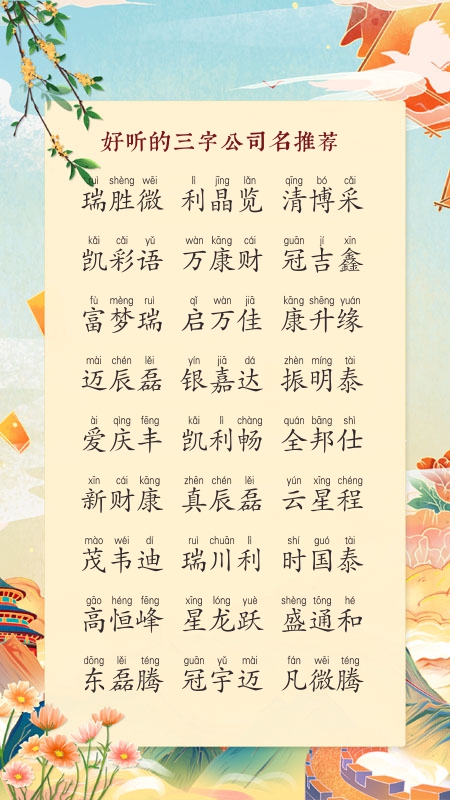 好听的三字公司名推荐
ruì shèng wēi lì jīng lǎn qīng bó cǎi
瑞胜微 利晶览 清博采
kǎi cǎi yǔ wàn kāng cái guān jí xīn
凯彩语 万康财 冠吉鑫
fù mèng ruì qǐ wàn jiā kāng shēng yuán
富梦瑞 启万佳 康升缘
mài chén lěi yín jiā dá zhèn míng tài
迈辰磊 银嘉达 振明泰
ài qìng fēng kǎi lì chàng quán bāng shì
爱庆丰 凯利畅 全邦仕
xīn cái kāng zhēn chén lěi yún xīng chéng
新财康 真辰磊 云星程
mào wéi dí ruì chuān lì shí guó tài
茂韦迪 瑞川利 时国泰
gāo héng fēng xīng lóng yuè shèng tōng hé
高恒峰 星龙跃 盛通和
dōng lěi téng guān yǔ mài fán wēi téng
东磊腾 冠宇迈 凡微腾